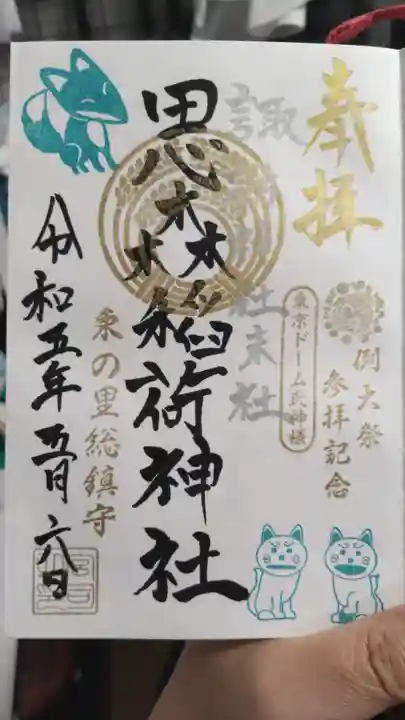 奉拝
例大祭
参拝記念
東京ドーム氏神様
諏訪神社末社
思森稲荷神社
の里総鎮守
令和五年五月六日